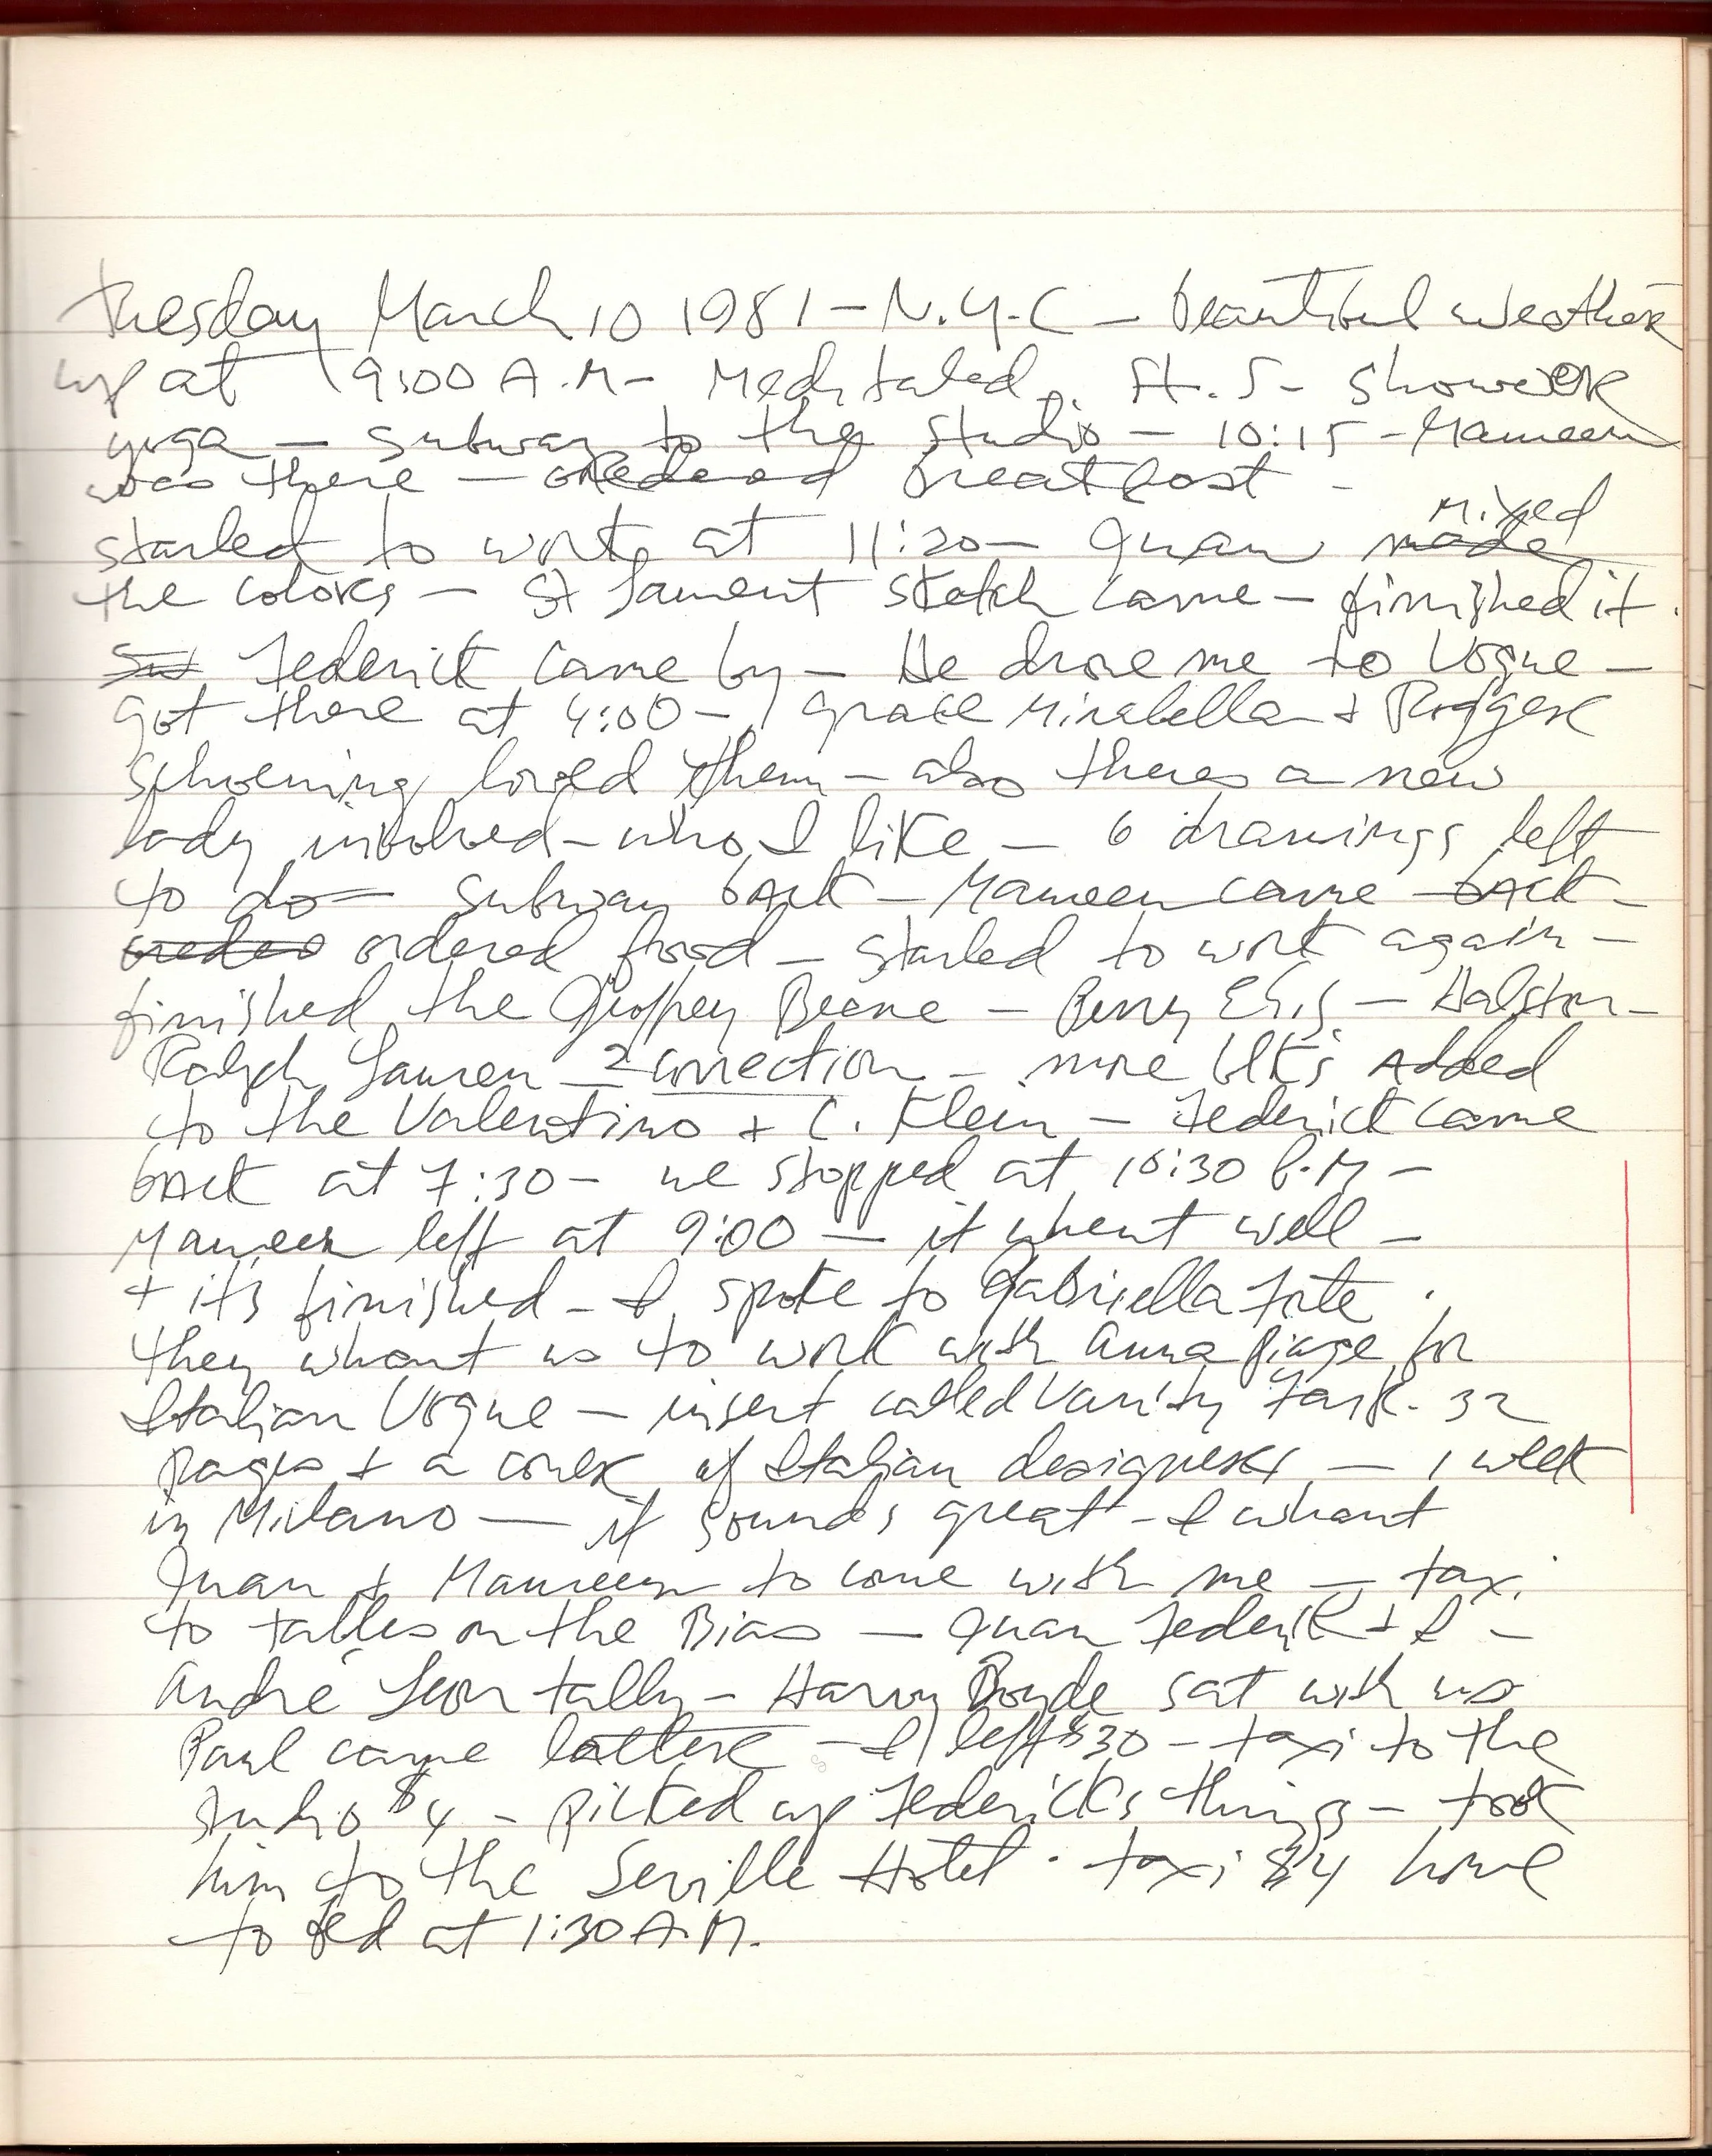 Tuesday March 10 1981 - N.Y.C - beautiful weather
up at 9:00 A.M - Meditated. St. S - shower
yoga - subway to the studio - 10:15 - Maureen
was there - ordered breakfast -
mixed
started to work at 11:20 - Juan made
the colors - St Laurent sketch came - finished it.
Federick came by - He drove me to Vogue -
got there at 4:00 - Grace Mirabella + Rogger
Schoening loved them - also theres a new
lady involved - who I like - 6 drawings left
to do - subway back - Maureen came back -
ordered food - started to work again -
finished the Geoffrey Beene - Perry Ellis - Halston -
Ralph Lauren - 2 correction - more blks Added
to the Valentino + C. Klein - Federick came
back at 7:30 - we stopped at 10:30 P.M -
Maureen left at 9:00 - it whent well -
+ its finished - I spoke to Gabriella Forte.
they whant us to work with Anna Piage for
Italian Vogue - insert called Vanity Fair. 32
pages + a cover of Italian designers - 1 week
in Milano - it sounds great - I whant
Juan + Maureen to come with me - taxi
to tables on the Bias - Juan Federick + I -
André Leon tally - Harvy Boyde sat with us
Paul came latter - I left $30 - taxi to the
studio $4 - picked up Federicks things - took
him to the Seville Hotel. taxi $4 home
to bed at 1:30 A.M.